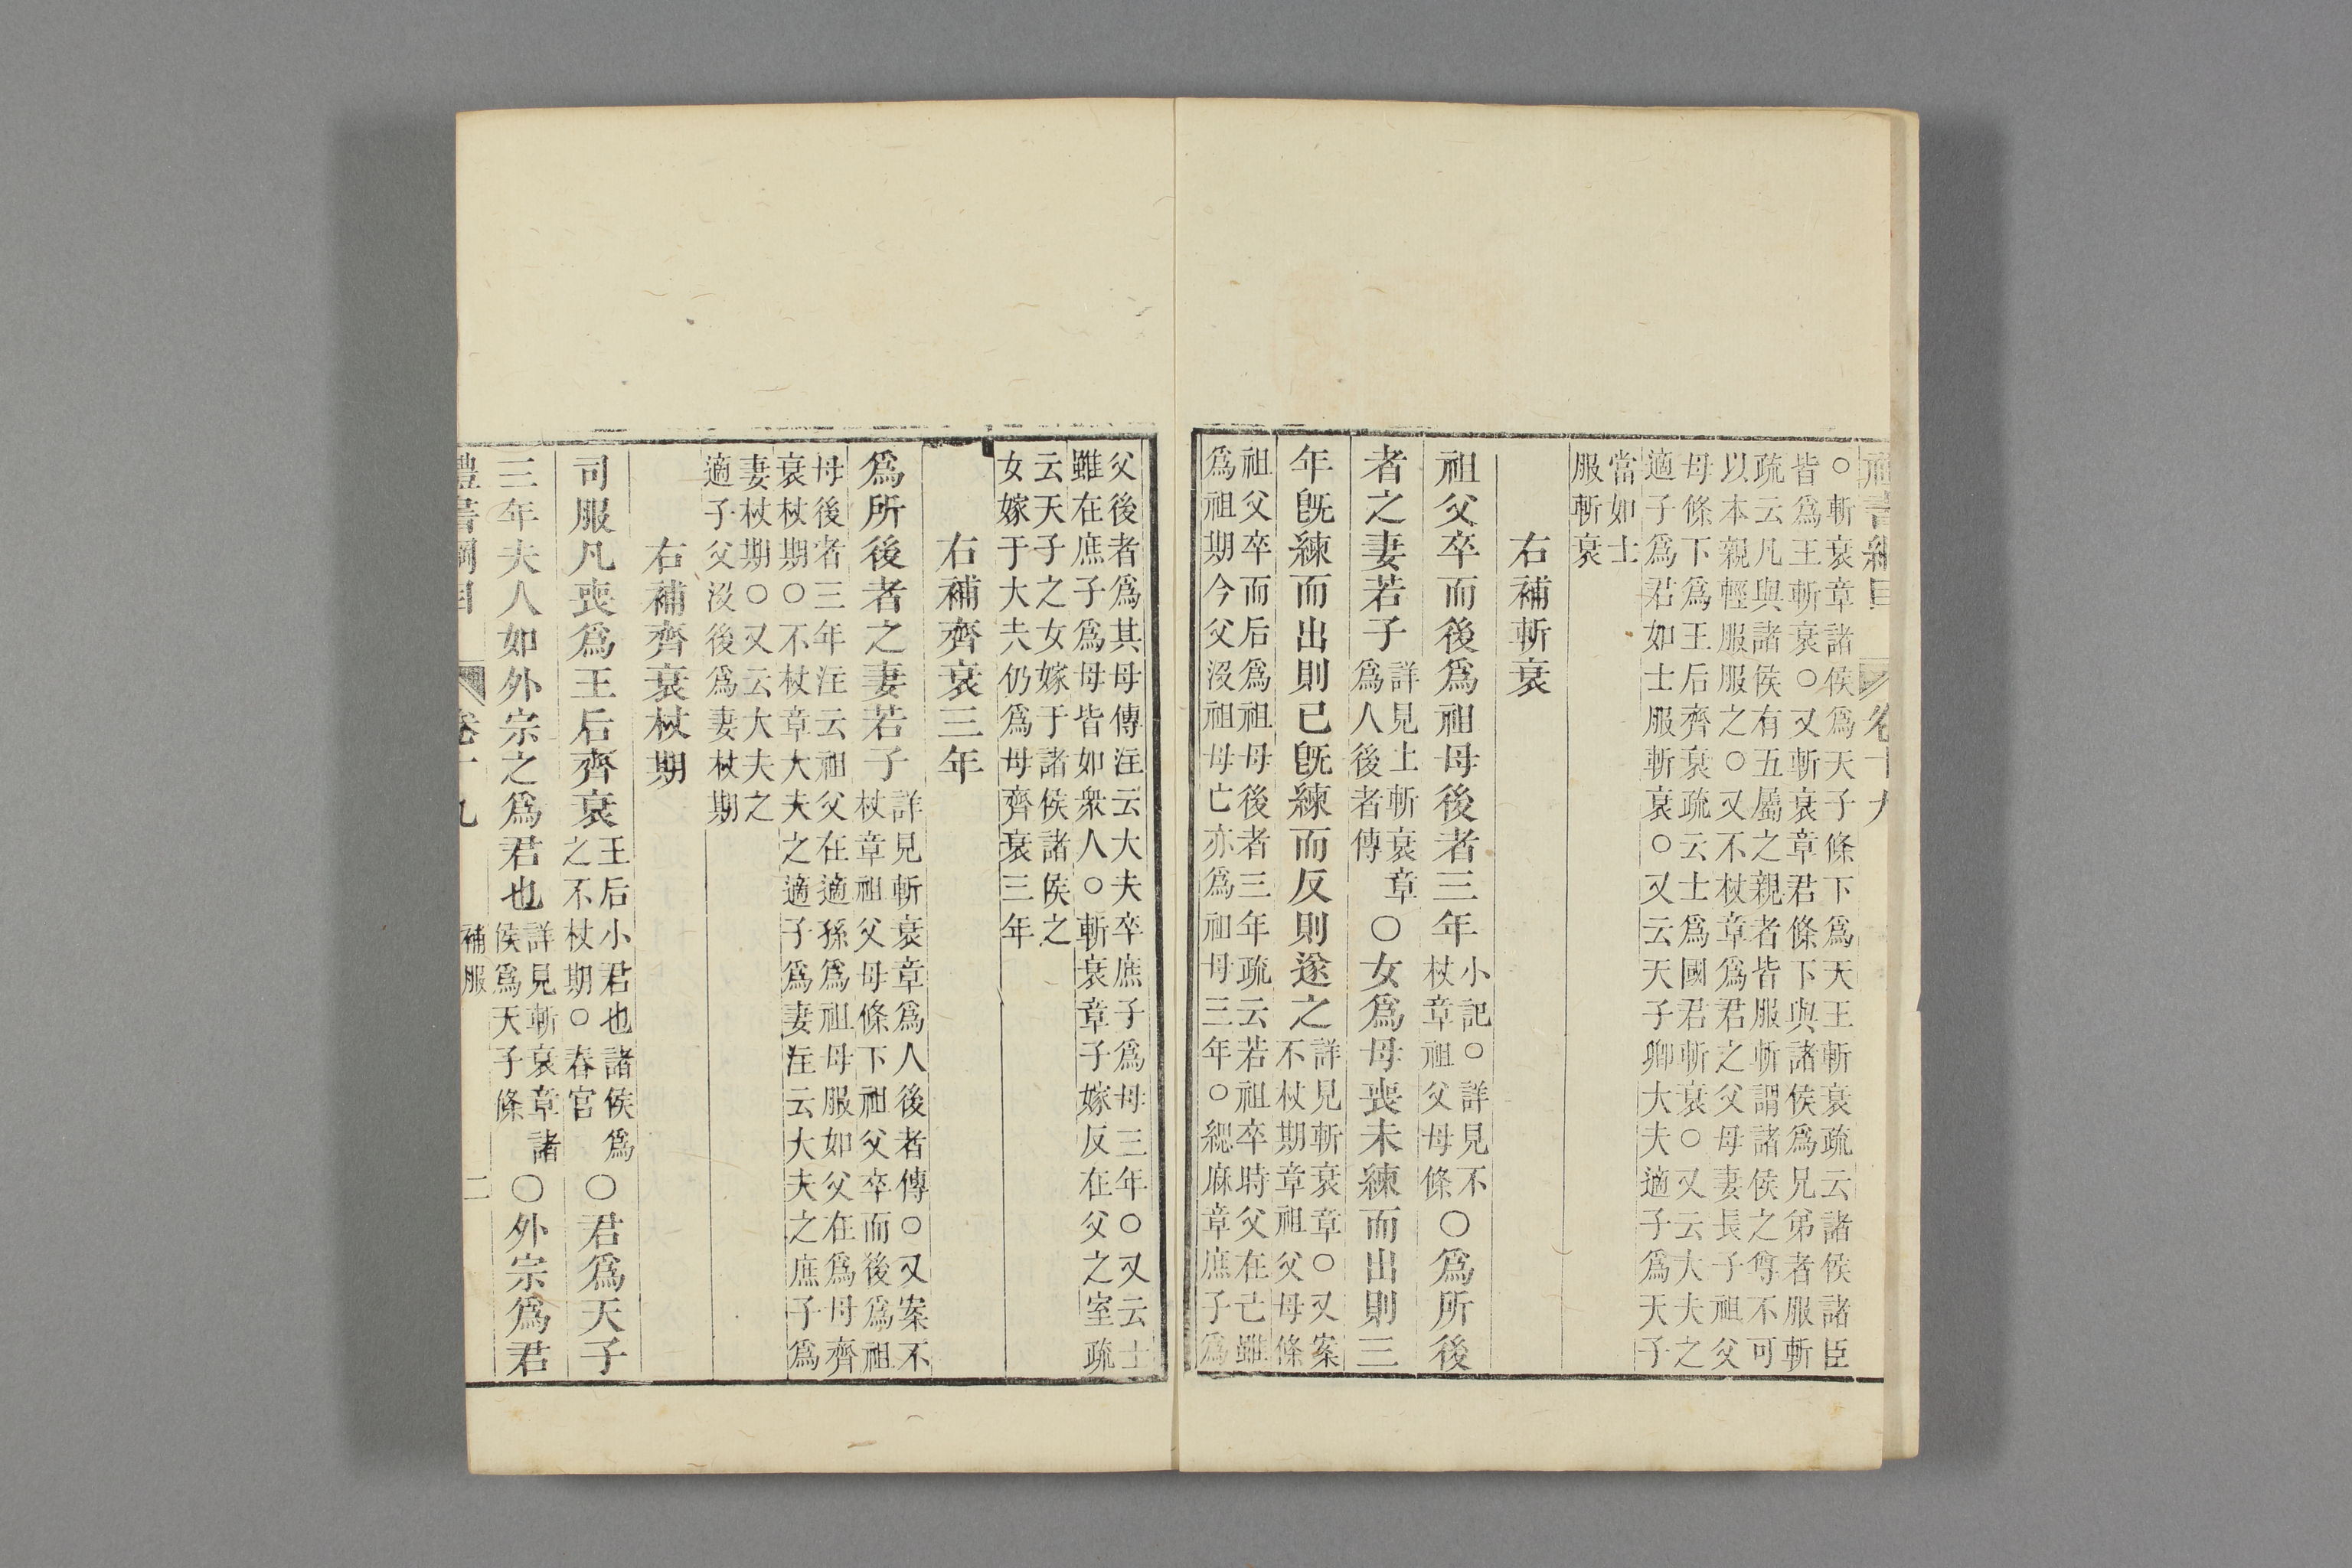 禮書綱目 卷十九
○斬衰章諸侯爲天子條下爲天王斬衰疏云諸侯諸臣
皆爲王斬衰○又斬衰章君條下與諸侯爲兄弟者服斬
疏云凡與諸侯有五屬之親者皆服斬謂諸侯之尊不可
以本親輕服服之○又不杖章爲君之父母妻長子祖父
母條下爲王后齊衰疏云士爲國君斬衰○又云大夫之
適子爲君如士服斬衰○又云天子卿大夫適子爲天子
當如士
服斬衰
右補斬衰
祖父卒而後爲祖母後者三年小記○詳見不杖章祖父母條○爲所後
者之妻若子詳見上斬衰章爲人後者傳○女爲母喪未練而出則三
年旣練而出則已旣練而反則遂之詳見斬衰章○又案不杖期章祖父母條
祖父卒而后爲祖母後者三年疏云若祖卒時父在已雖
爲祖期今父沒祖母亡亦爲祖母三年○緦麻章庶子爲
父後者爲其母傳注云大夫卒庶子爲母三年○又云士
雖在庶子爲母皆如衆人○斬衰章子嫁反在父之室疏
云天子之女嫁于諸侯諸侯之
女嫁于大夫仍爲母齊衰三年
右補齊衰三年
爲所後者之妻若子詳見斬衰章爲人後者傳○又案不杖章祖父母條下祖父卒而後爲祖
母後者三年注云祖父在適孫爲祖母服如父在爲母齊
衰杖期○不杖章大夫之適子爲妻注云大夫之庶子爲
妻杖期○又云大夫之
適子父沒後爲妻杖期
右補齊衰杖期
司服凡喪爲王后齊衰王后小君也諸侯爲之不杖期○春官○君爲天子
三年夫人如外宗之爲君也詳見斬衰章諸侯爲天子條○外宗爲君
禮書綱目 卷十九 補服 二